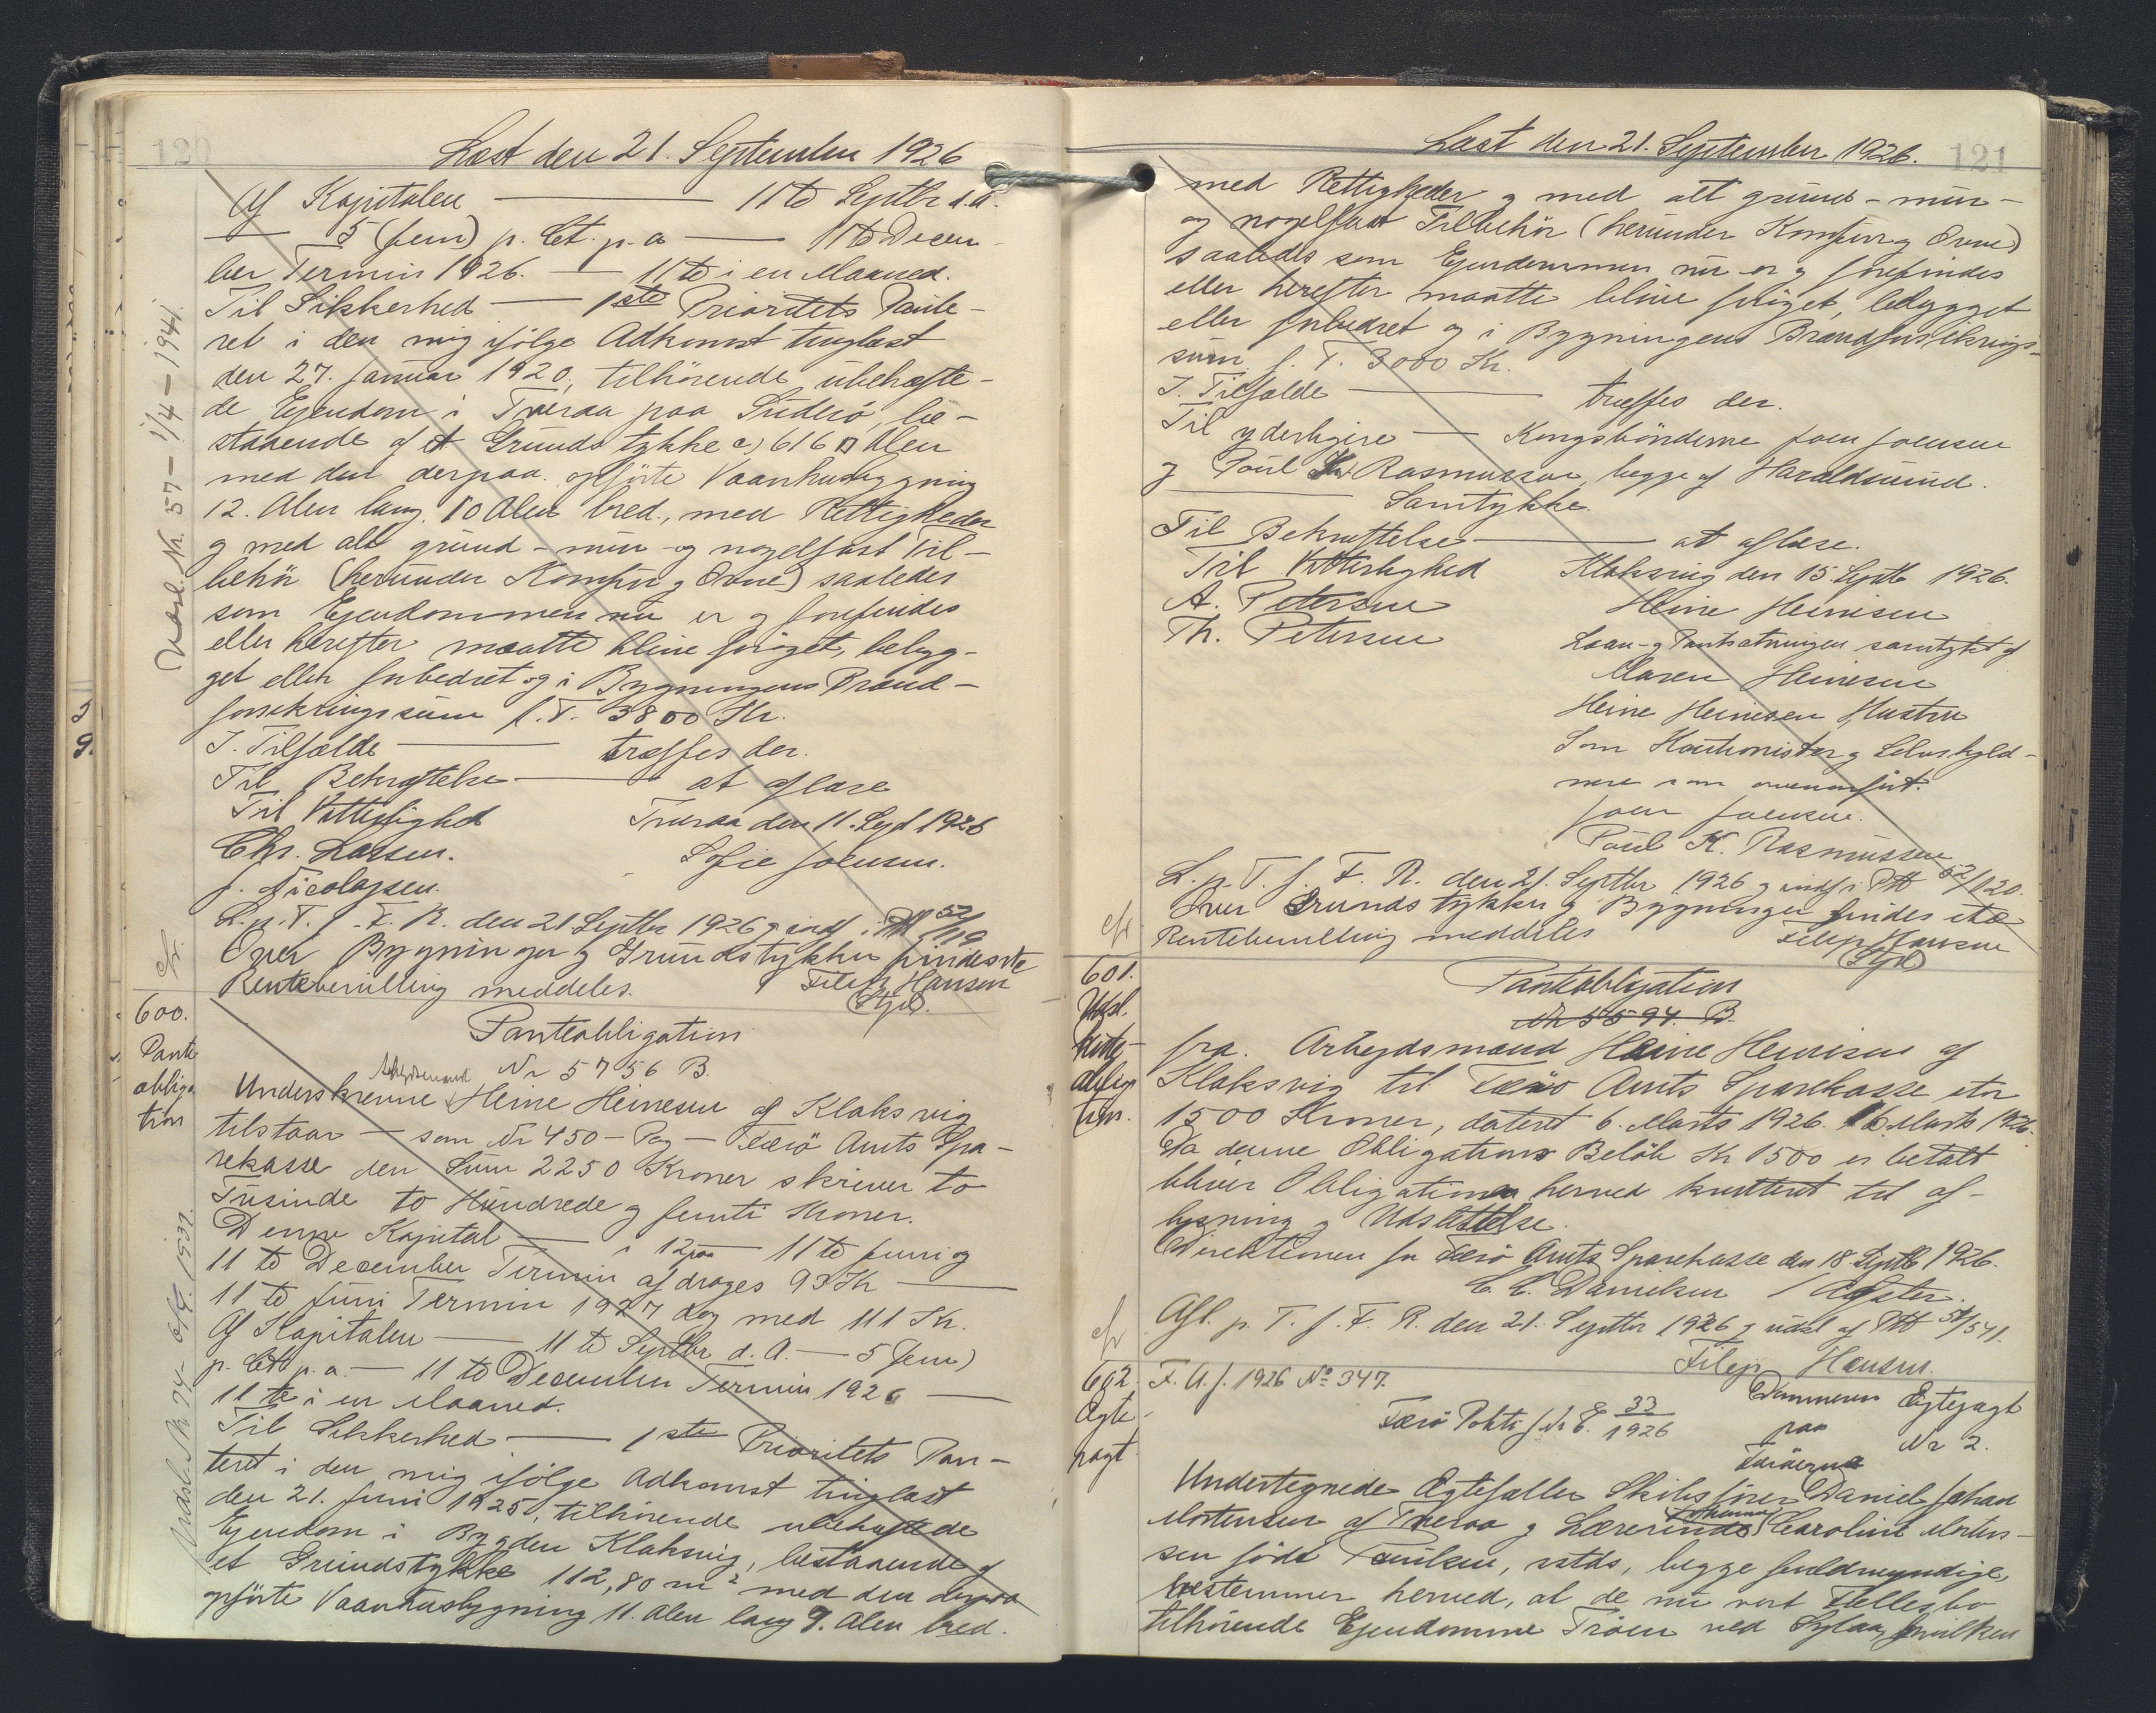 120
Læst den 21. September 1926
Af Kapitalen — 11te Septbr d.A.
— 5 (fem) p. Ct. p. a — 11te Decem-
ber Termin 1926. — 11te i en Maaned.
Til Sikkerhed — 1ste Prioritets Pante-
ret i den mig ifølge Adkomst tinglæst
den 27. Januar 1920, tilhørende ubehæfte-
de Ejendom i Tveraa paa Suderø, be-
staaende af et Grundstykke a) 616 □ Alen
med den derpaa opførte Vaanhusbygning
12. Alen lang, 10 Alen bred., med Rettigheder
og med alt grund- mur- og nagelfast Til-
behør (herunder Komfur og Ovne) saaledes
som Ejendommen nu er og forefindes
eller herefter maatte blive forøget, bebyg-
get eller forbedret og i Bygningens Brand-
forsikringssum f. T. 3800 Kr.
I. Tilfælde — træffes der.
Til Bekræftelse — at aflæse
Til Vitterlighed Tveraa den 11. Sept 1926
Chr. Larsen. Sofie Joensen.
J. Nicolajsen.
L. p. T. f. F. R. den 21 Septbr 1926 og indf. i Ptt 52/119
Over Bygninger og Grundstykker findes ite
Rentebevilling meddeles. Filip Hansen
(Stgd).
Udsl. Nr. 57 – 1/4 – 1941.
cfr.
600.
Pante
obliga
tion
Panteobligation
Nr 5756 B.
Arbejdsmand
Underskrevne Heine Heinesen af Klaksvig
tilstaar — som Nr 450 — Pag — Færø Amts Spa-
rekasse den Sum 2250 Kroner skriver to
Tusinde to Hundrede og femti Kroner.
Denne Kapital — i 12 — 11te Juni og
11te December Termin afdrages 93 Kr —
11te Juni Termin 1927 dog med 111 Kr.
Af Kapitalen — 11te Septbr d. A. — 5 (fem)
p. Ct. p. a. — 11te December Termin 1926 —
11te i en Maaned.
Til Sikkerhed — 1ste Prioritets Pan-
teret i den mig ifølge Adkomst tinglæst
den 21. Juni 1925, tilhørende ubehæftede
Ejendom i Bygden Klaksvig, bestaaende af
et Grundstykke 112,80 m² med den derpaa
opførte Vaanhusbygning 11. Alen lang 9. Alen bred.
121
Læst den 21. September 1926.
med Rettigheder og med alt grund- mur-
og nagelfast Tilbehør (herunder Komfur og Ovne)
saaledes som Ejendommen nu er og forefindes
eller herefter maatte blive forøget, bebygget
eller forbedret og i Bygningens Brandforsikrings-
sum f. T. 3000 Kr.
I. Tilfælde — træffes der.
Til yderligere — Kongsbønderne Joen Joensen
og Poul K. Rasmussen, begge af Haraldsund.
— Samtykke.
Til Bekræftelse — at aflæse.
Til Vitterlighed Klaksvig den 15. Septb 1926.
A. Petersen Heine Heinesen
Th. Petersen Laan- og Pantsætningen samtykt af
Maren Heinesen
Heine Heinesen Hustru
Som Kautionister og Selvskyld-
nere som ovenanført.
Joen Joensen.
Poul K. Rasmussen
L. p. T. f. F. R. den 21. Septbr 1926 og indf. i Ptt 52/120.
Over Grundstykker og Bygninger findes ite
Rentebevilling meddeles Filip Hansen
(Stgd)
cfr
601.
Udsl.
Panteobligation
Nr 5594. B.
fra. Arbejdsmand Heine Heinesen af
Klaksvig til Færø Amts Sparekasse stor
1500 Kroner, dateret 6. Marts 1926. 16 Marts 1926.
Da denne Obligations Beløb Kr 1500 er betalt
bliver Obligationen herved kvitteret til af-
lysning og Udslettelse.
Direktionen for Færø Amts Sparekasse den 18. Septb 1926.
C. C. Danielsen /
Afl. p. T. f. F. R. den 21. Septbr 1926 og udsl af Ptt 51/541.
Filip Hansen.
cfr
602
Ægte-
pagt
F. A. J. 1926 No 347.
Færø Politi J. Nr E. 33/1926
Dommeren
paa
Færøerne
Egtepagt
Nr 2.
Undertegnede Ægtefæller Skibsfører Daniel Johan
Mortensen af Tveraa og Lærerinde Johanne Caroline Morten-
sen født Poulsen, sstds, begge fuldmyndige,
bestemmer herved, at de nu vort Fællesbo
tilhørende Ejendomme Trøen ved Sylaa, hvilken